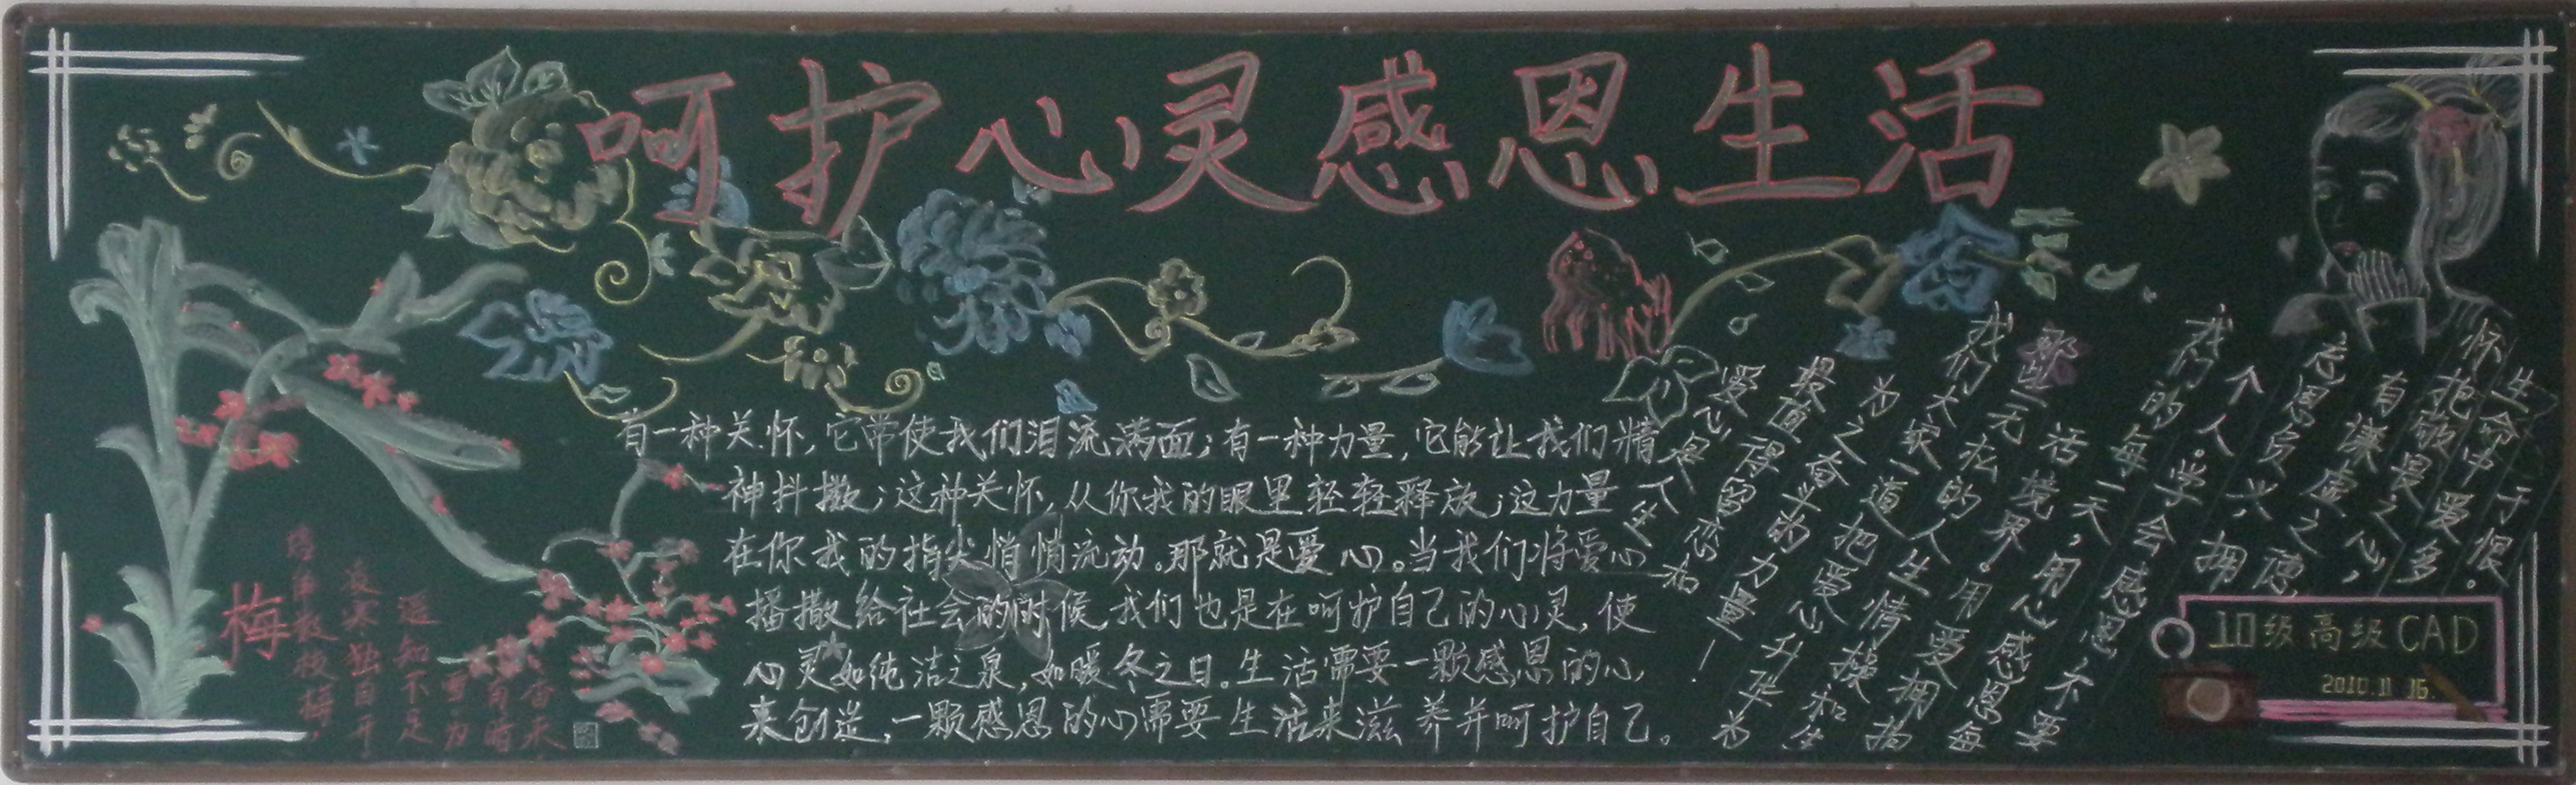 呵护心灵感恩生活
有一种关怀,它常使我们泪流满面;有一种力量,它能让我们精
神抖擞;这种关怀,从你我的眼里轻轻释放;这力量
在你我的指尖悄悄流动。那就是爱心。当我们将爱心
播撒给社会的时候,我们也是在呵护自己的心灵,使
心灵如纯洁之泉,如暖冬之日。生活需要一颗感恩的心
来创造,一颗感恩的心需要生活来滋养并呵护自己。
爱心是人生
最值得留恋和
为之奋斗的力量—
我们大家一道把爱心升华为
一无私的人生情操和生
活境界。用爱拥抱
我们的每一天,用心感恩每
个人。学会感恩不要
忘恩负义,拥
有谦虚之德
怀把敬畏之心,
生命中爱多
于恨。
梅
墙角数枝梅,
凌寒独自开
遥知不是
雪为
有暗
香来
10级高级CAD
2010.11 16.